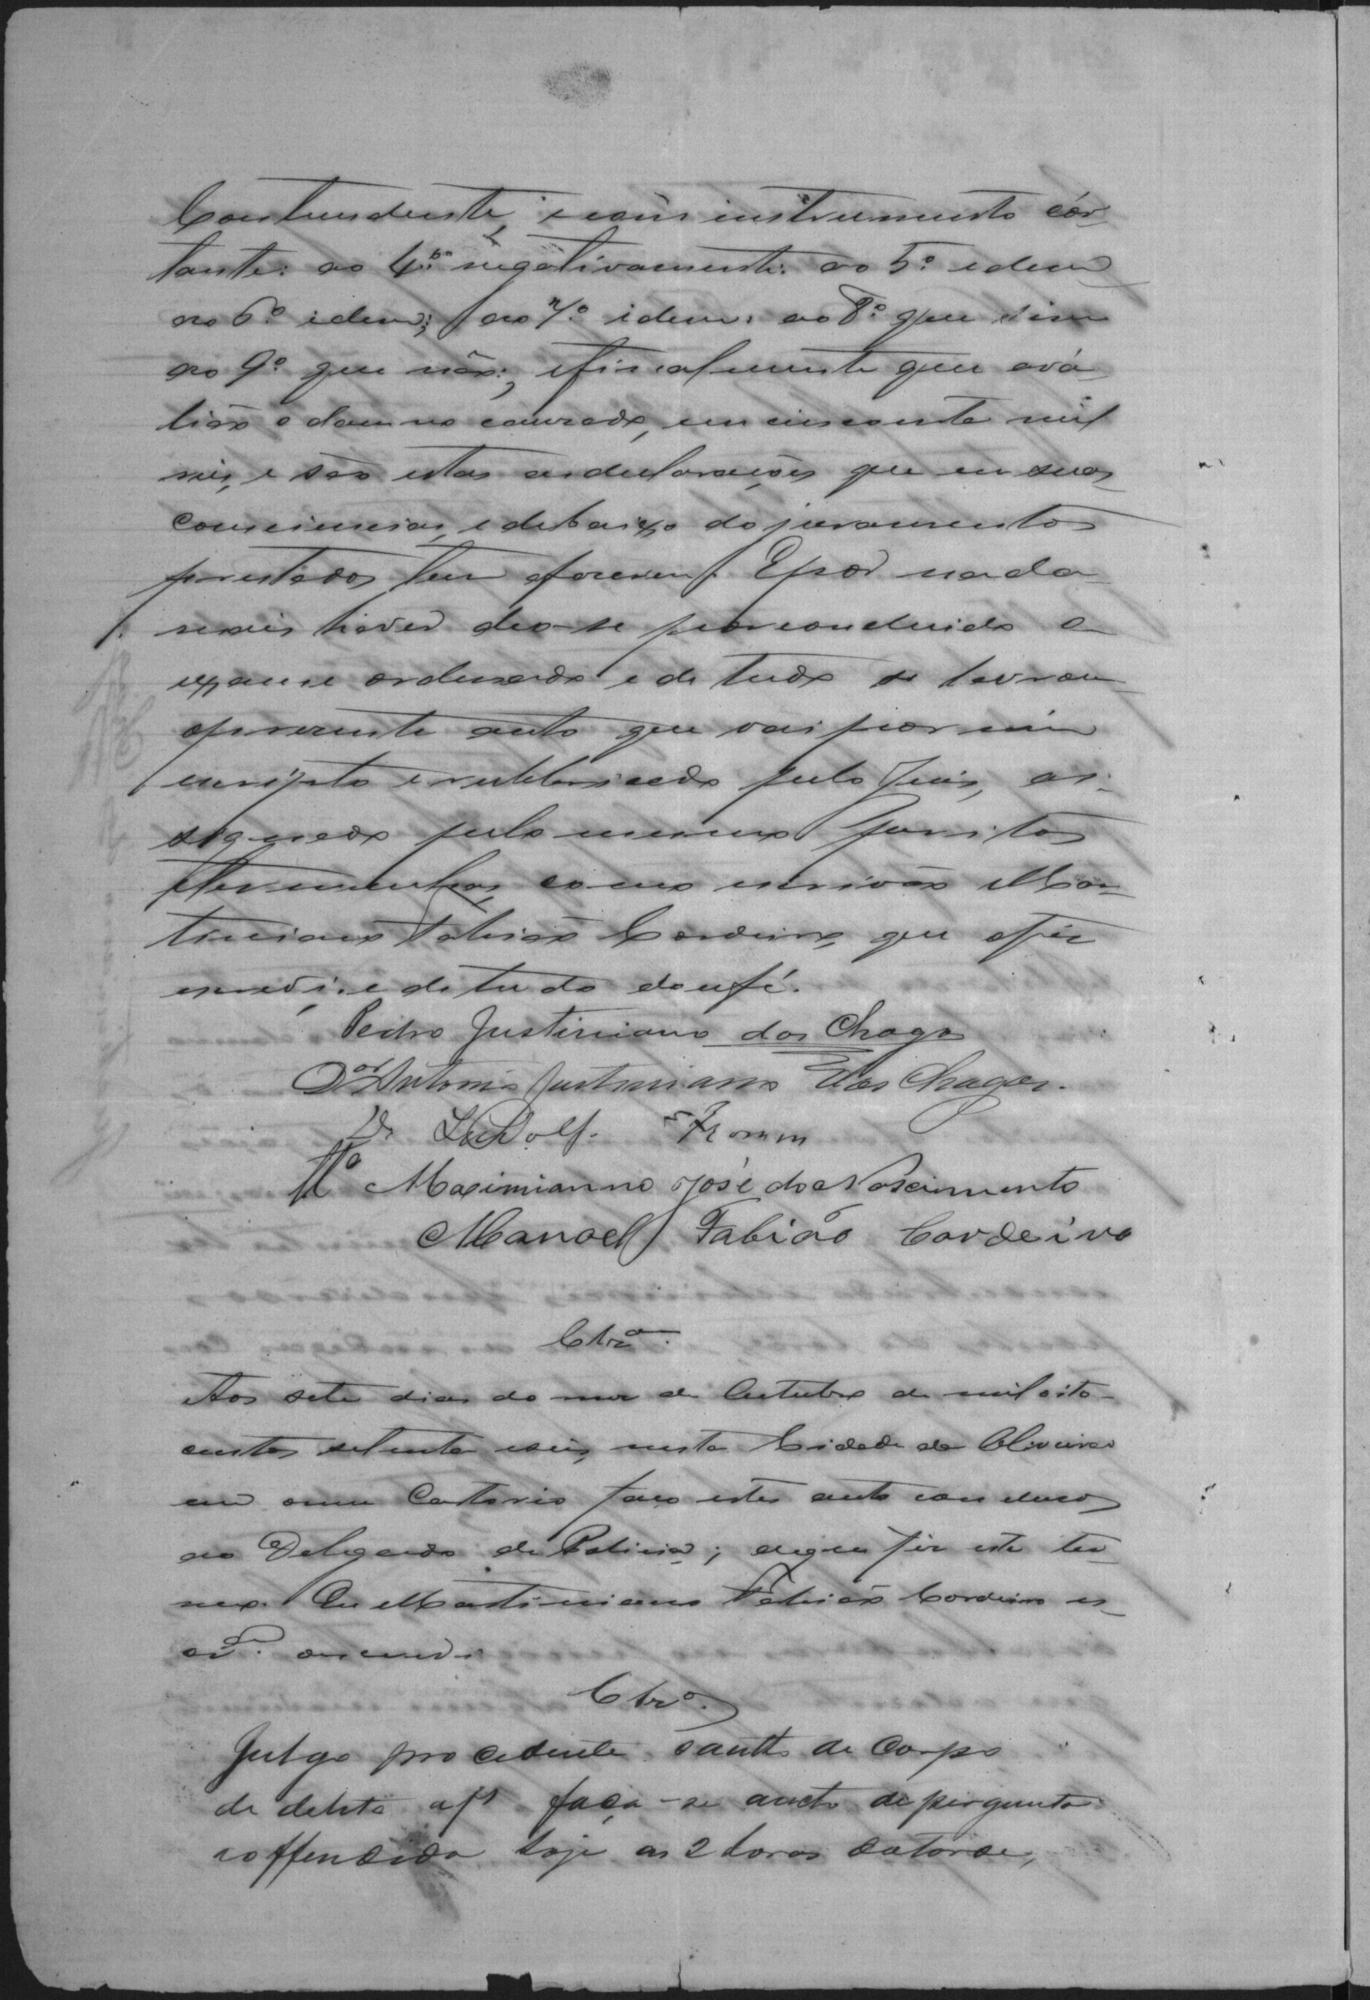 Contundente, e com instrumento cor-
tante: ao 4.º negativamente: ao 5.º idem
ao 6.º idem; ao 7.º idem: ao 8.º que sim
ao 9.º que não; e finalmente que ava-
lião o damno causado, em cincoenta mil
reis, e são estas as declarações que em suas
consciencias, e debaixo do juramento
prestados tem a fazerem. E por nada
mais haver deo-se por concluido o
exame ordenado e de tudo se lavrou
o presente auto que vai por mim
escripto e rubbricado pelo Juis, as-
signado pelo mesmo Peritos
e testemunhas, como escrivão Mar-
tiniano Fabião Cordeiro, que o fiz
escrevi, e de tudo dou fé.
Pedro Justiniano das Chagas
Dor Antonio Justiniano das Chagas.
Dr Ludolf Fromm
Ta Maximianno José do Nascimento
Manoel Fabião Cordeiro
Clzam.
Aos sete dias do mez de Outubro de mil oito-
centos setenta e seis, nesta Cidade da Oliveira
em meu Cartorio faço estes auto conclusos
ao Delegado de Policia; do que fiz este ter-
mo. Eu Martiniano Fabião Cordeiro es-
cram. escrevi.
Clzo.
Julgo procedente o autto de Corpo
de delito a fs faça-se aucto de pergunta
ao offendido hoje as 2 horas da tarde,